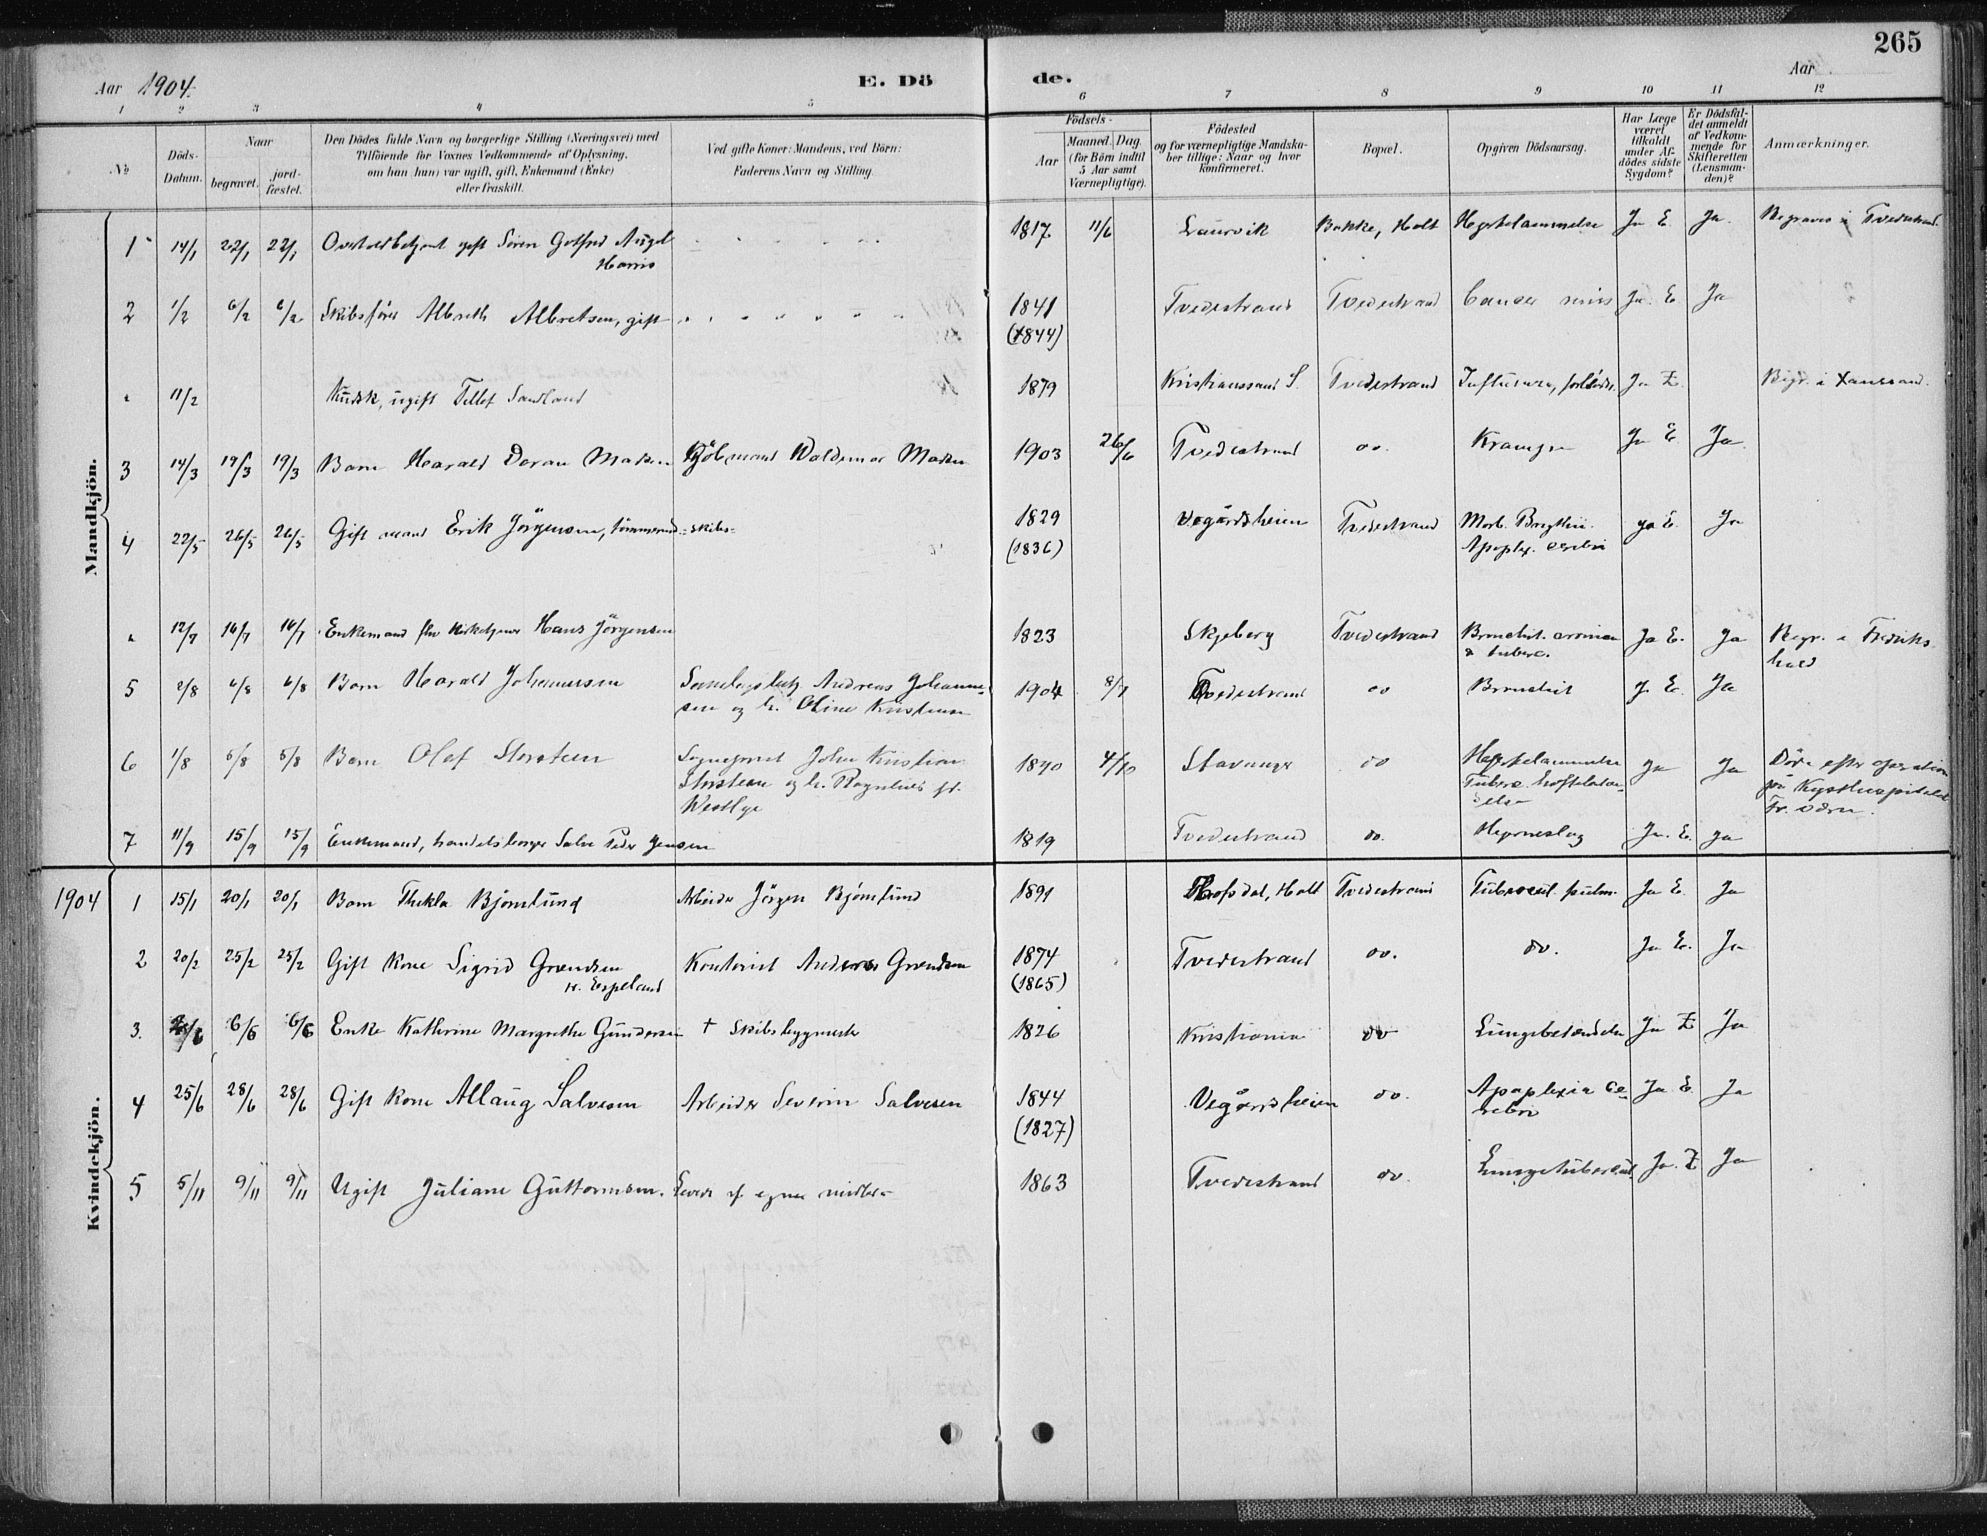 265
Aar 1904. E. Dö de. Aar
1 2 3 4 5 6 7 8 9 10 11 12
No
Döds-Datum.
Naar
begravet.
jord-fæstet.
Den Dödes fulde Navn og borgerlige Stilling (Næringsvei) med
Tilföiende for Voxnes Vedkommende af Oplysning,
om han (hun) var ugift, gift, Enkemand (Enke)
eller fraskilt.
Ved gifte Koner: Mandens, ved Börn:
Faderens Navn og Stilling.
Födsels-
Aar
Maaned. Dag.
(for Börn indtil
5 Aar samt
Værnepligtige).
Födested
og for værnepligtige Mandska-
ber tillige: Naar og hvor
konfirmeret.
Bopæl.
Opgiven Dödsaarsag.
Har Læge
været
tilkaldt
under Af-
dödes sidste
Sygdom?
Er Dödsfal-
det anmeldt
af Vedkom-
mende for
Skifteretten
(Lensman-
den)?
Anmærkninger.
Mandkjön.
1 14/1 22/1 22/1 gift Sören Gotfred 1817 11/6 Laurvik Bakke, Holt Hjertelammelse Ja E. Ja. Begraves i Tvedestrand.
Harris
2 1/2 6/2 6/2 Skibsfører Albreth Albretsen, gift 1841 Tvedestrand Tvedestrand Cancer Ja. E. Ja
(1844)
11/2 ugift Tellef Sandland 1879 Kristianssand S. Tvedestrand Influenza, Ja E. Begr. i Xanssand.
3 14/3 19/3 19/3 Barn Harald Madsen Kjöbmand Waldemar Madsen 1903 26/6 Tvedestrand do. Kramper Ja E. Ja
4 22/5 26/5 26/5 Gift mand Erik Jörgensen, tömmermd. skibs- 1829 Vegårdsheien Tvedestrand Morb. Brigthii. ja E. Ja
(1836) Apoplex. cerebri
12/7 16/7 16/7 Enkemand fhv Kirketjener Hans Jörgensen 1823 Skjeberg Tvedestrand Bronchit. Ja E. Ja Begr. i Fredriks-
& tuberc. hald
5 2/8 6/8 6/8 Barn Harald Johannessen Andreas Johanne- 1904 8/7 Tvedestrand do Bronchit J. E. Ja
sen og h. Oline Kristense
6 1/8 5/8 5/8 Barn Olaf Storsteen Sogneprest John Kristian 1890 4/10 Stavanger do Hjertelammelse Ja Ja Döde efter operation
Storsteen og h. f. Tuberc. hoftelidel- på Kysthospitalet
Westlye else Fr.værn.
7 11/9 15/9 15/9 Enkemand, handelsborger Salve Peder Jensen 1819 Tvedestrand do. Hjerneslag Ja. E. Ja
Kvindekjön.
1904 1 15/1 20/1 20/1 Barn Thekla Bjørnlund Arbeider Jörgen Bjørnlund 1891 Holt Tvedestrand Tubercul. pulm. Ja E. Ja
2 20/2 25/2 25/2 Gift Kone Sigrid Grændsen Kontorist Anders Grændsen 1874 Tvedestrand do. do. Ja E. Ja
f. Espeland (1865)
3. 6/6 6/6 Enke Kathrine Margrethe Gundersen + Skibsbyggmester 1826 Kristiania do Lungebetændelse Ja E. Ja
4 25/6 28/6 28/6 Gift Kone Allaug Salvesen Arbeider Severin Salvesen 1844 Vegårdsheien do. Apoplexia ce- Ja E. Ja
(1827) rebri
5 5/11 9/11 9/11 Ugift Juliane Guttormsen. Levede af egne midler- 1863 Tvedestrand do. Lungetubercul. Ja. E. Ja